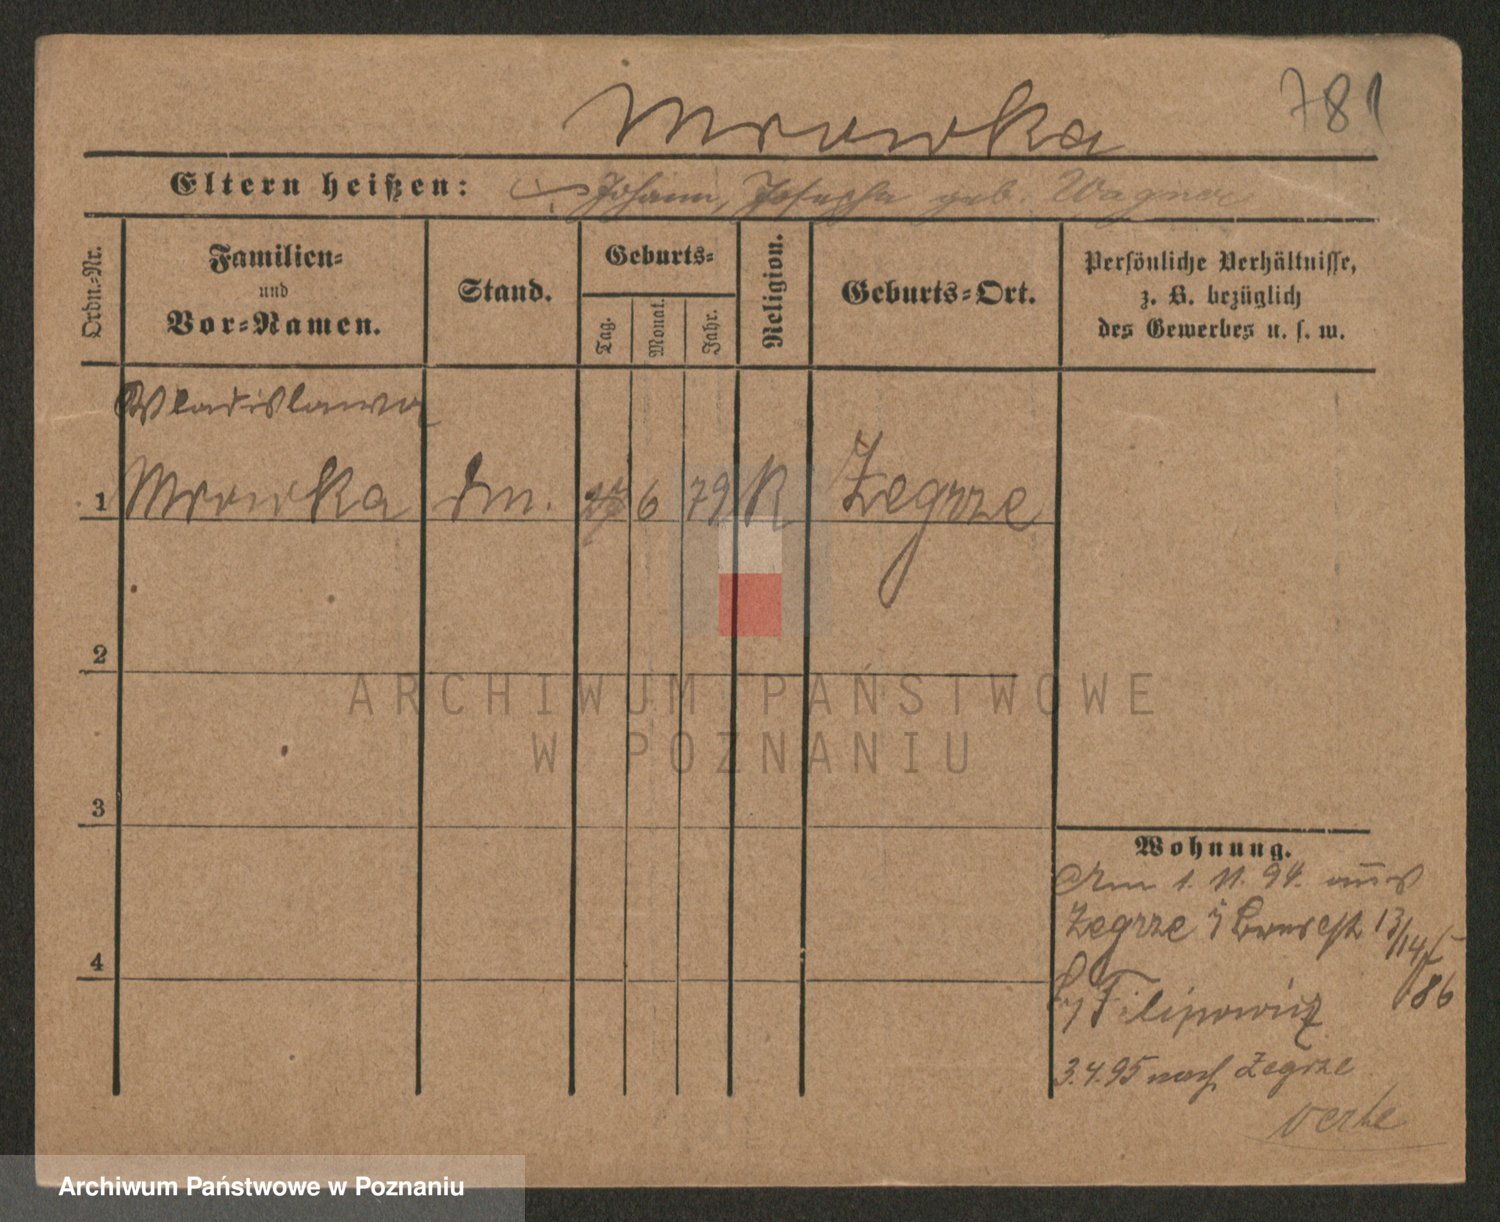 781
Mrowka
Eltern heißen: Johann, Josepha geb. Wagner
Ordn.-Nr.
Familien-
und
Vor-Namen.
Stand.
Geburts-
Tag.
Monat.
Jahr.
Religion.
Geburts-Ort.
Persönliche Verhältnisse,
z. B. bezüglich
des Gewerbes u. s. w.
Wladislawa
1 Mrowka dm. 27 6 79 K Zegrze
2
3
4
ARCHIWUM PAŃSTWOWE
W POZNANIU
Wohnung.
Am 1. 11. 94. aus
Zegrze 13/14
86
by Filipowicz
3.4.95 nach Zegrze
Archiwum Państwowe w Poznaniu